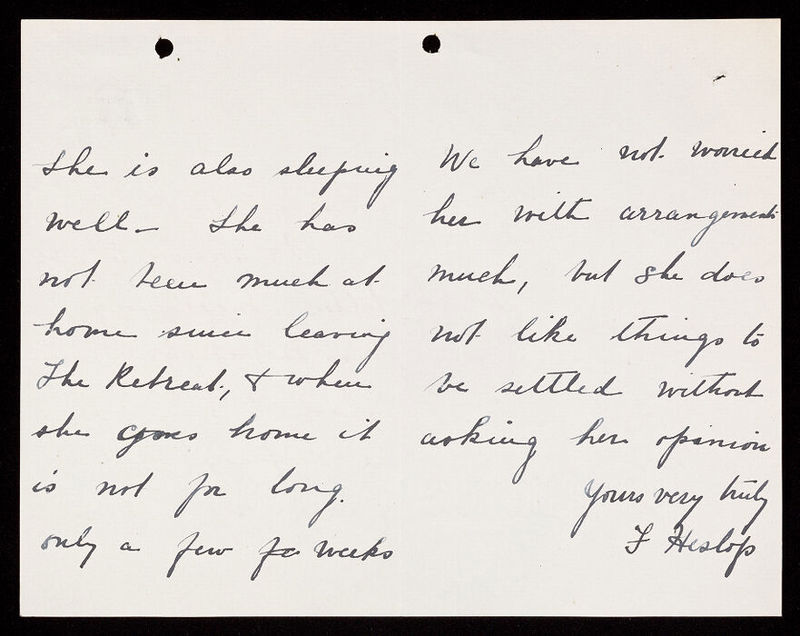 She is also sleeping
well — She has
not been much at
home since leaving
The Retreat, & when
she goes home it
is not for long.
only a few weeks
We have not worried
her with arrangements
much, but she does
not like things to
be settled without
asking her opinion
Yours very truly
F Heslop